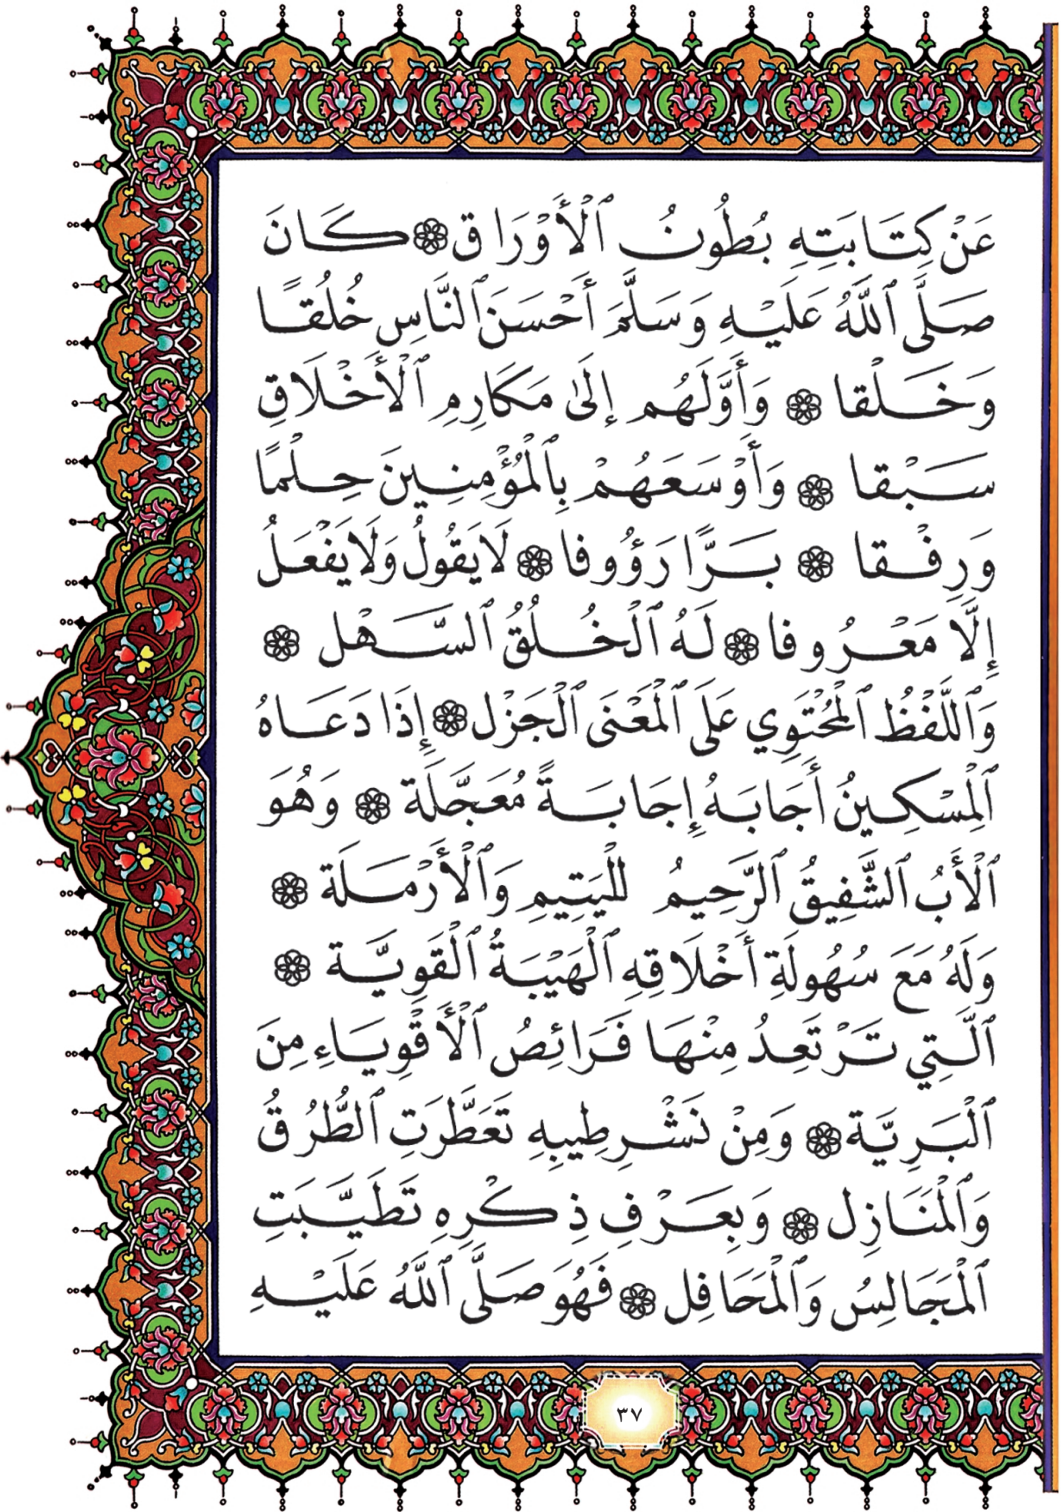 عَنْ كِتَابَتِهِ بُطُونُ ٱلْأَوْرَاق ۞ كَانَ
صَلَّى ٱللَّهُ عَلَيْهِ وَسَلَّمَ أَحْسَنَ ٱلنَّاسِ خُلُقًا
وَخَلْقا ۞ وَأَوَّلَهُم إِلَىٰ مَكَارِمِ ٱلْأَخْلَاقِ
سَبْقا ۞ وَأَوْسَعَهُمْ بِٱلْمُؤْمِنِينَ حِلْمًا
وَرِفْقا ۞ بَرًّا رَؤُوفا ۞ لَايَقُولُ وَلَايَفْعَلُ
إِلَّا مَعْرُوفا ۞ لَهُ ٱلْخُلُقُ ٱلسَّهْل ۞
وَٱللَّفْظُ ٱلْمُحْتَوِي عَلَى ٱلْمَعْنَى ٱلْجَزْل ۞ إِذَا دَعَاهُ
ٱلْمِسْكِينُ أَجَابَهُ إِجَابَةً مُعَجَّلَة ۞ وَهُوَ
ٱلْأَبُ ٱلشَّفِيقُ ٱلرَّحِيمُ لِلْيَتِيمِ وَٱلْأَرْمَلَة ۞
وَلَهُ مَعَ سُهُولَةِ أَخْلَاقِهِ ٱلْهَيْبَةُ ٱلْقَوِيَّة ۞
ٱلَّتِي تَرْتَعِدُ مِنْهَا فَرَائِصُ ٱلْأَقْوِيَاءِ مِنَ
ٱلْبَرِيَّة ۞ وَمِنْ نَشْرِ طِيبِهِ تَعَطَّرَتِ ٱلطُّرُقُ
وَٱلْمَنَازِل ۞ وَبِعَرْفِ ذِكْرِهِ تَطَيَّبَتِ
ٱلْمَجَالِسُ وَٱلْمَحَافِل ۞ فَهُوَ صَلَّى ٱللَّهُ عَلَيْهِ
٣٧